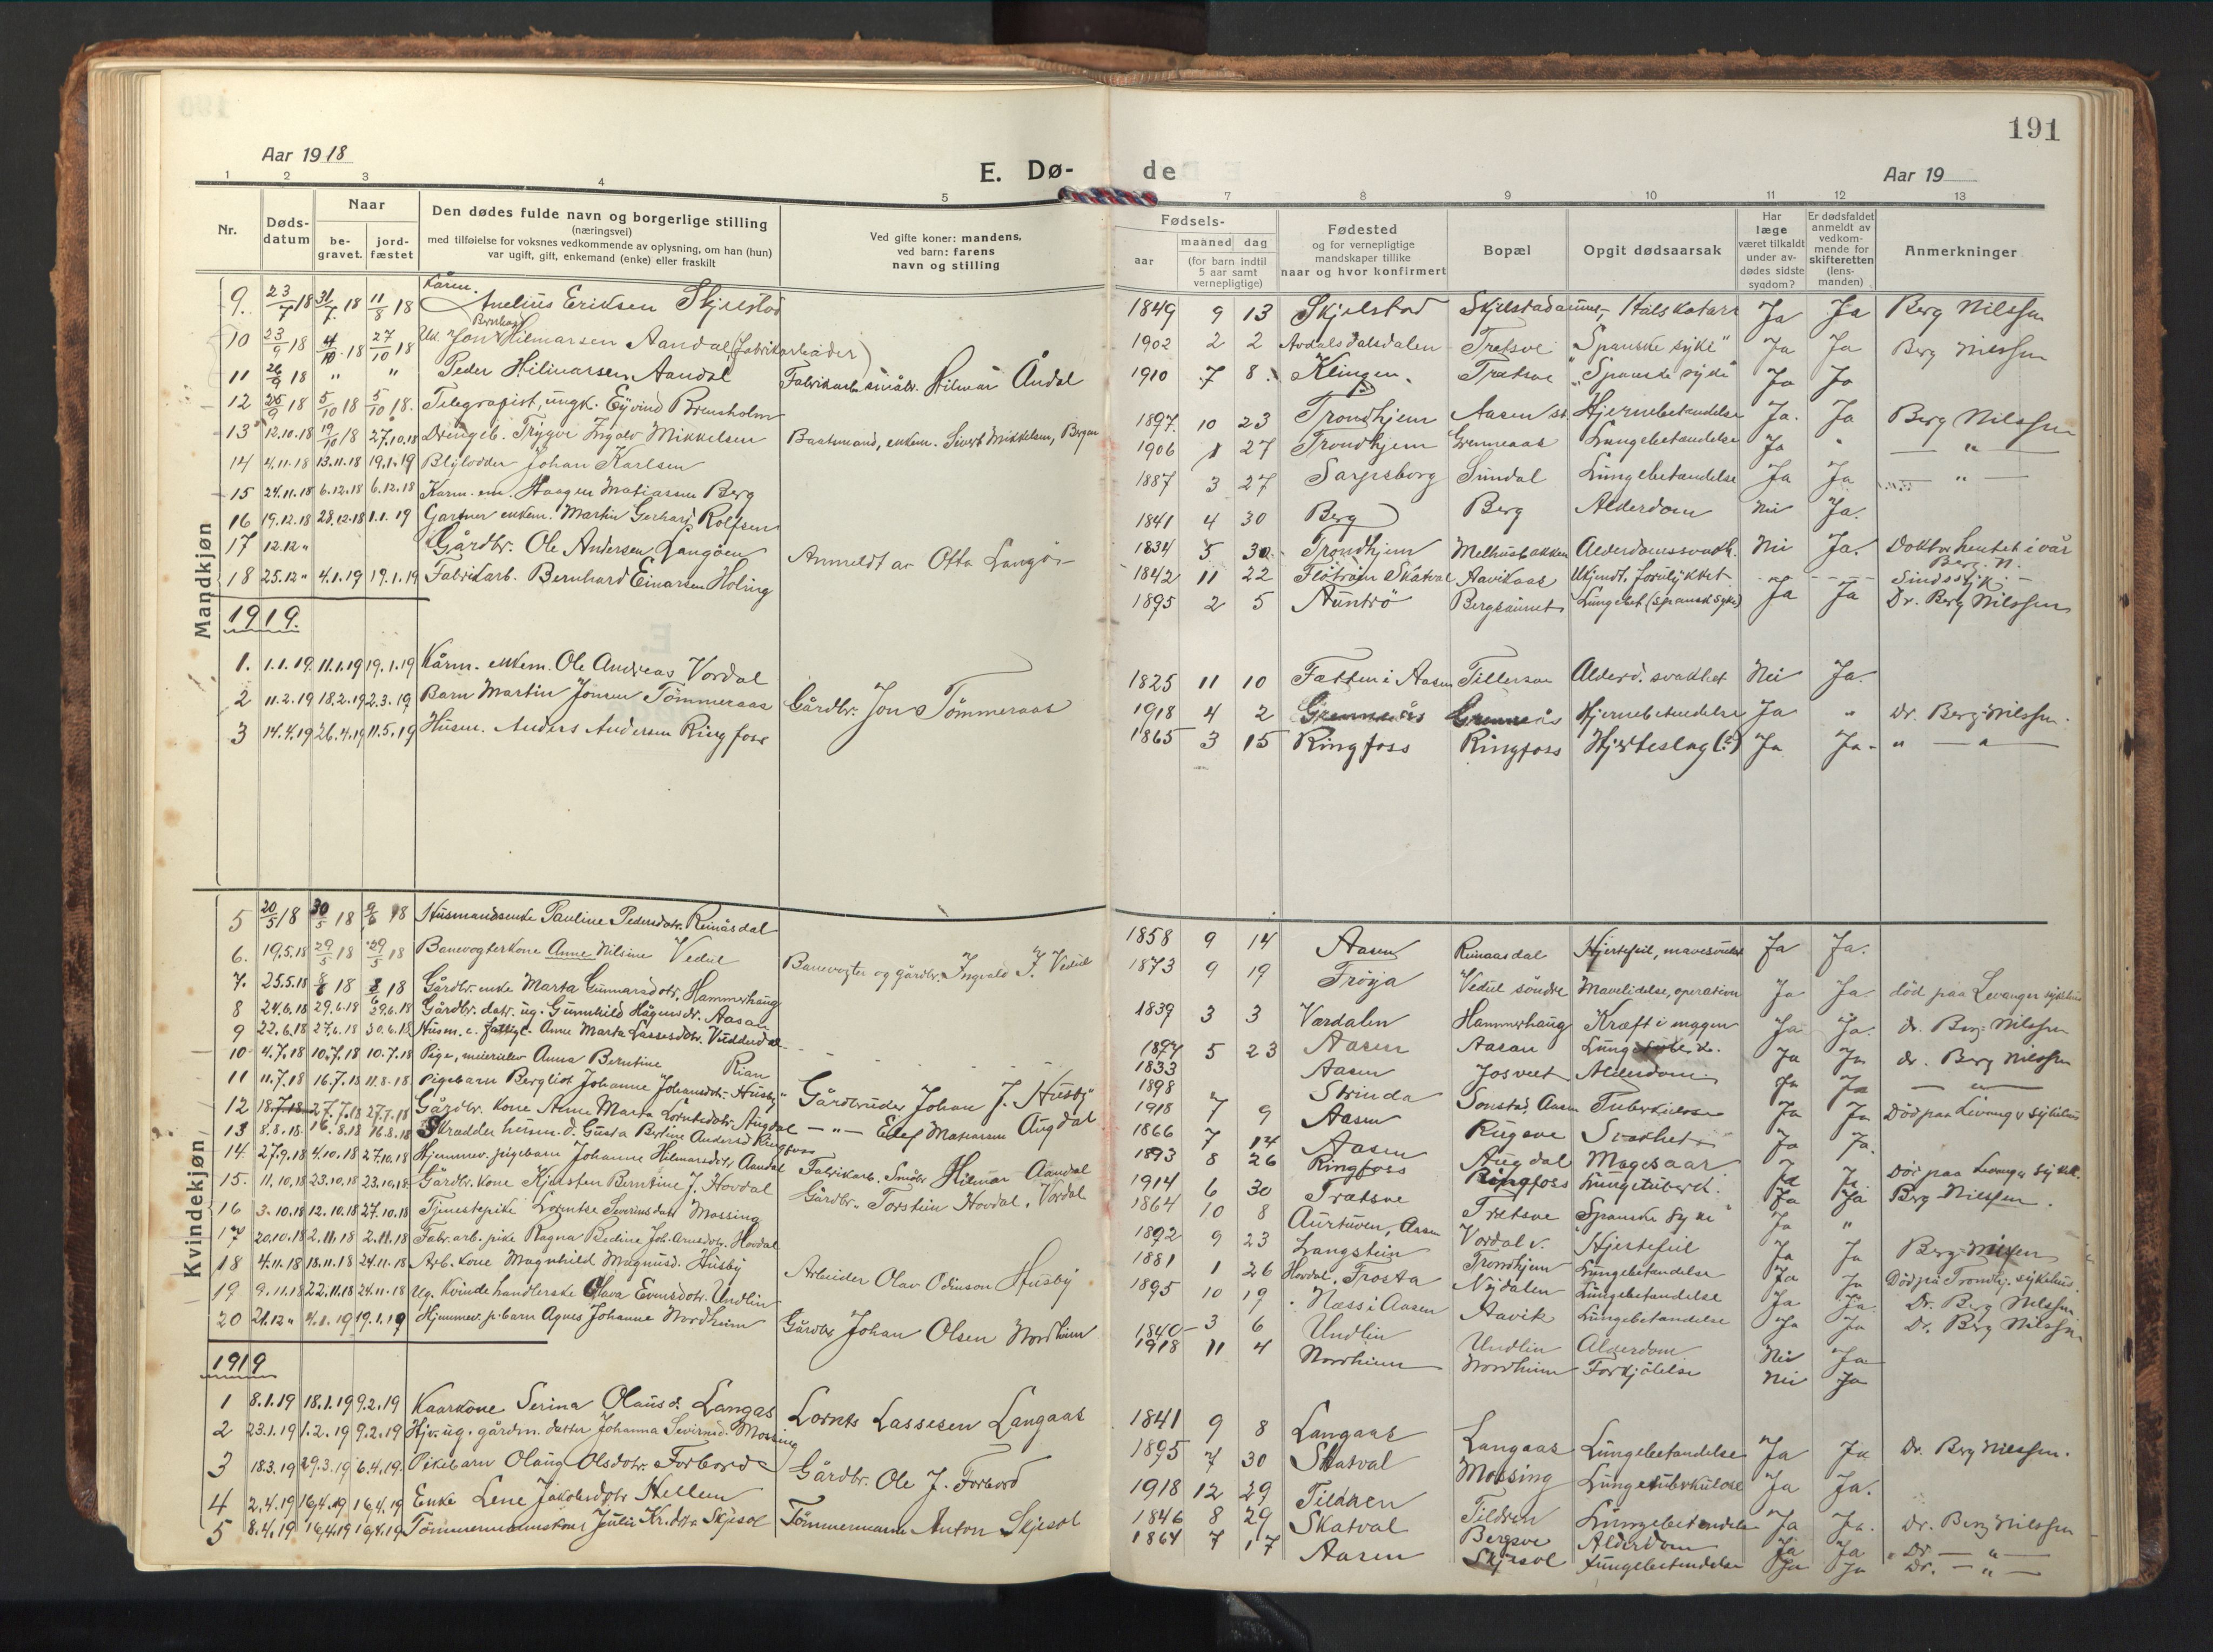 191
Aar 1918
E. Dø-
de
Aar 19
1 2 3 4 5 7 8 9 10 11 12 13
Nr.
Døds-datum
Naar
be-gravet.
jord-fæstet
Den dødes fulde navn og borgerlige stilling
(næringsvei)
med tilføielse for voksnes vedkommende av oplysning, om han (hun)
var ugift, gift, enkemand (enke) eller fraskilt
Ved gifte koner: mandens,
ved barn: farens
navn og stilling
Fødsels-
aar
maaned dag
(for barn indtil
5 aar samt
vernepligtige)
Fødested
og for vernepligtige
mandskaper tillike
naar og hvor konfirmert
Bopæl
Opgit dødsaarsak
Har
læge
været tilkaldt
under av-
dødes sidste
sygdom?
Er dødsfaldet
anmeldt av
vedkom-
mende for
skifteretten
(lens-
manden)
Anmerkninger
Mandkjøn
9. 23/7 18 31/7 18 11/8 18 Kårm. Anelius Eriksen Skjelstad 1849 9 13 Skjelstad Skjelstadaunet Halskatarr Ja Ja Berg Nilssen
10 23/9 18 4/10 18 27/10 18 Jon Hilmarsen Aandal (Fabrikarbeider) 1902 2 2 Tretsve "Spanske syke" Ja Ja Berg Nilssen
11 26/9 18 " " Peder Hilmarsen Aandal Fabrikarb. småbr. Hilmar Åndal 1910 7 8 Klingen Tretsve "Spanske syke" Ja Ja
12 25/9 18 5/10 18 5/10 18. Telegrafist, ungk. Eyvind Brensholm 1897. 10 23 Trondhjem Aasen st. Hjernebetændelse Ja. Ja Berg Nilssen
13 12.10.18 19/10 18 27.10.18 Drengeb. Trygve Ingolv Mikkelsen Baatsmand, enkem. Sivert Mikkelsen, Bergen 1906 1 27 Trondhjem Grenneaas Lungebetændelse Ja " — " —
14 4.11.18 13.11.18 19.1.19 Blylodder Johan Karlsen 1887 3 27 Sarpsborg Sundal Lungebetændelse Ja Ja — " —
15 24.11.18 6.12.18 6.12.18 Kårm. em. Haagen Matiassen Berg 1841 4 30 Berg Berg Alderdom Nei Ja.
16 19.12.18 28.12.18 1.1.19 Gartner enkem. Martin Gerhard Rolfsen 1834 5 30. Trondhjem Melhusbakken Alderdomssvakh. Nei Ja. Doktor hentet i vår Berg. N.
17 12.12 " Gårdbr. Ole Andersen Langøen Anmeldt av Otto Langø- 1842 11 22 Fløtrøm Skatval Aavikaas Ukjendt, forulykket - - - Sindssyk -
18 25.12 " 4.1.19 19.1.19 Fabrikarb. Bernhard Einarsen Holing 1895 2 5 Auntrø Bergsaunet Lungebet (spansk syke) Ja Ja Dr. Berg Nilssen
1919.
1. 1.1.19. 11.1.19 19.1.19 Kårm. enkem. Ole Andreas Vordal 1825 11 10 Fættem i Aasen Tillersve Alderd. svakhet Nei Ja.
2 11.2.19 18.2.19 2.3.19 Barn Martin Jonsen Tømmeraas Gårdbr. Jon Tømmeraas 1918 4 2 Grenneås Grenneås Hjernebetændelse Ja " Dr. Berg-Nilssen.
3 14.4.19 26.4.19 11.5.19 Husm. Anders Andersen Ringfoss 1865 3 15 Ringfoss Ringfoss Hjerteslag (?) Ja Ja. " — " —
Kvindekjøn
5 20/5 18 30/5 18 9/6 18 Husmandsenke Pauline Pedersdotr. Reinåsdal 1858 9 14 Aasen Reinaasdal Hjertefeil, Ja Ja.
6. 19.5.18 29/5 18 29/5 18 Banevogterkone Anne Nilsine Vedul Banevogter og gårdbr. Ingvald J. Vedul 1873 9 19 Frøya Vedul søndre Mavelidelse, operation Ja Ja. død paa Levanger sykehus
7. 25.5.18 8/6 18 8/6 18 Gårdbr. enke Marta Gunnarsdotr. Hammerhaug 1839 3 3 Værdalen Hammerhaug Kræft i magen Ja Ja. dr. Berg-Nilssen
8 24.6.18 29.6.18 29.6.18 Gårdbr. datr. ug. Gunnhild Hågensdr. Aasan 1874 5 23 Aasen Aasan Ja Ja dr. Berg Nilssen
9 22.6.18 27.6.18 30.6.18 Husm. e. fattigl. Anne Marta Lassesdotr. 1833 Aasen Josveet Alderdom Ja Ja — " —
10 4.7.18 10.7.18 10.7.18 Pige, meierielev Anna Berntine Rian 1898 7 9 Strinda Sonstad, Aasen Tuberkulose Ja Ja Død paa Levanger sykehus
11 11.7.18 16.7.18 11.8.18 Pigebarn Bergliot Johanne Johansdtr. Husby Gårdbruder Johan J. Husby 1918 7 14 Aasen Rugsve Svakhet Ja Ja.
12 18.7.18 27.7.18 27.7.18 Gårdbr. kone Anne Marta Lorntsdotr. Augdal — " — Edef Matiassen Augdal 1866 8 26 Aasen Augdal Magesaar. Ja Ja. Død paa Levanger sykeh.
13 8.8.18 16.8.18 16.8.18 Skrædder husm. d. Gusta Bertine Andersd Ringfoss 1893 6 30 Ringfoss Ringfoss Lungetuberk. Ja Ja Berg-Nilssen.
14. 27.9.18 4.10.18 27.10.18 Hjemmev. pigebarn Johanne Hilmarsdtr. Aandal Fabrikarb. Småbr Hilmar Aandal 1914 10 8 Tretsve Tretsve Spanske syke" Ja "
15. 11.10.18 23.10.18 23.10.18 Gårdbr. kone Kjersten Berntine J. Hovdal Gårdbr. Torstein Hovdal, Vordal 1864 9 23 Aurtuven, Aasen Vordal v. Hjertefeil Ja Ja Berg-Nilssen
16 3.10.18 12.10.18 27.10.18 Tjenestepike Lorentse Severinsdatr Mossing 1892 1 26 Langstein Trondhjem Lungebetændelse Ja Ja Død på Trondhj. sykehus.
17 20.10.18 2.11.18 2.11.18 Fabr. arb. pike Ragna Bedine Joh. Arnesdotr. Hovdal 1881 10 19 Hovdal, Frosta Nydalen Lungebetændelse Ja Ja. Dr. Berg Nilssen
18 4.11.18 13.11.18 24.11.18 Arb. kone Magnhild Magnusd. Husby Arbeider Olav Odinson Husby 1895 3 6 Næss i Aasen Aavike Lungebetændelse Ja Ja Dr. Berg Nilssen
19 9.11.18 22.11.18 24.11.18 Ug. kvinde handlerske Olava Evensdotr. Undlin 1840 Undlin Undlin Alderdom Nei Ja
20 21.12 " 4.1.19 19.1.19 Hjemmev. p. barn Agnes Johanne Nordheim Gårdbr. Johan Olsen Nordheim 1918 11 4 Nordheim Nordheim Forkjølelse Nei Ja
1919
1 8.1.19 18.1.19 9.2.19 Kaarkone Serina Olausd. Langås Lornts Lassesen Langaas 1841 9 8 Langaas Langaas Lungebetændelse Ja Ja Dr. Berg Nilssen.
2 23.1.19 1.2.19 9.2.19 Hjv. ug. gårdm. datter Johanna Severinsd. Mossing 1895 7 30 Skatval Mossing Lungetuberkulose Ja Ja.
3 18.3.19 29.3.19 6.4.19. Pikebarn Olaug Olsdotr. Forbord Gårdbr. Ole J. Forbord 1918 12 29 Tildren Tildren Lungebetændelse Ja Ja. Dr. Berg Nilssen
4 2.4.19 16.4.19 16.4.19 Enke Lene Jakobsdotr Hellem 1846 8 29 Skatval Bergsve Alderdom Ja Ja Dr. — " —
5 8.4.19 16.4.19 16.4.19 Tømmermannskone Julie Kr. dtr Skjesol Tømmermann Anton Skjesol 1864 7 17 Aasen Skjesol Lungebetændelse Ja Ja Dr. — " —